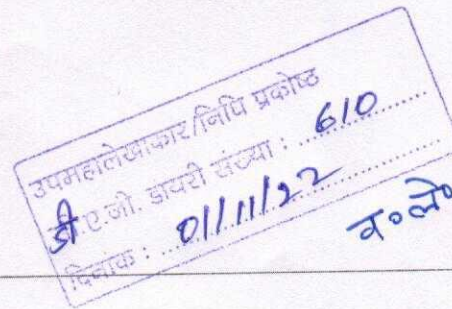 उपमहालेखाकार/निधि प्रकोष्ठ
डी.ए.जी. डायरी संख्या : 610
दिनांक : 01/11/22
व०ले०